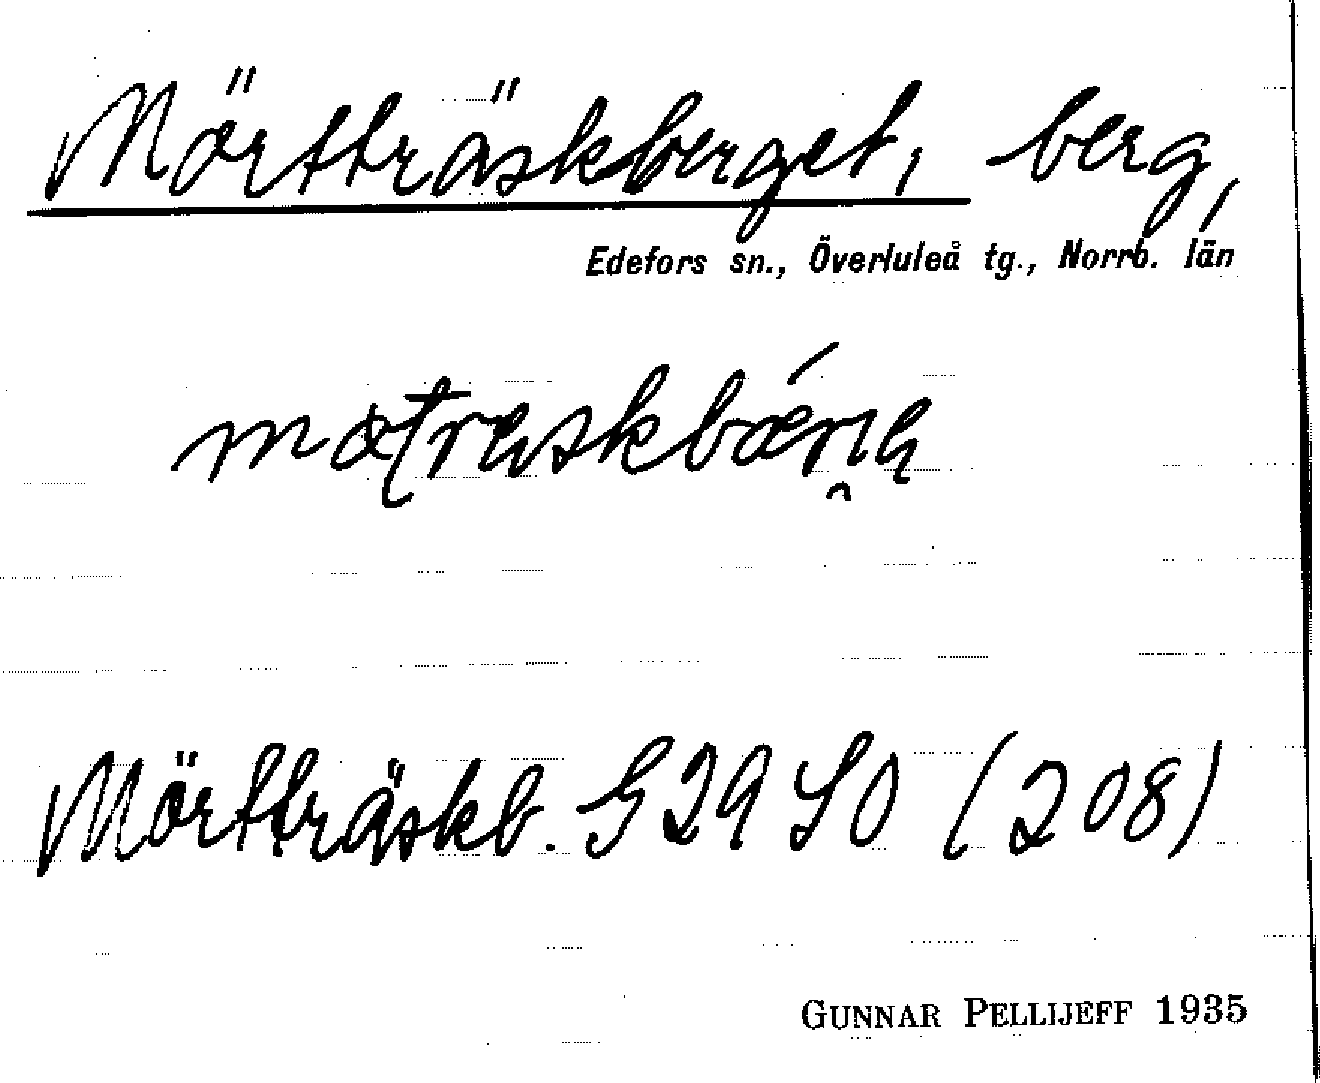 Mörtträskberget, berg,
Edefors sn., Överluleå tg., Norrb. län
Mörtträskb. G29 SO (208)
GUNNAR PELLIJEFF 1935